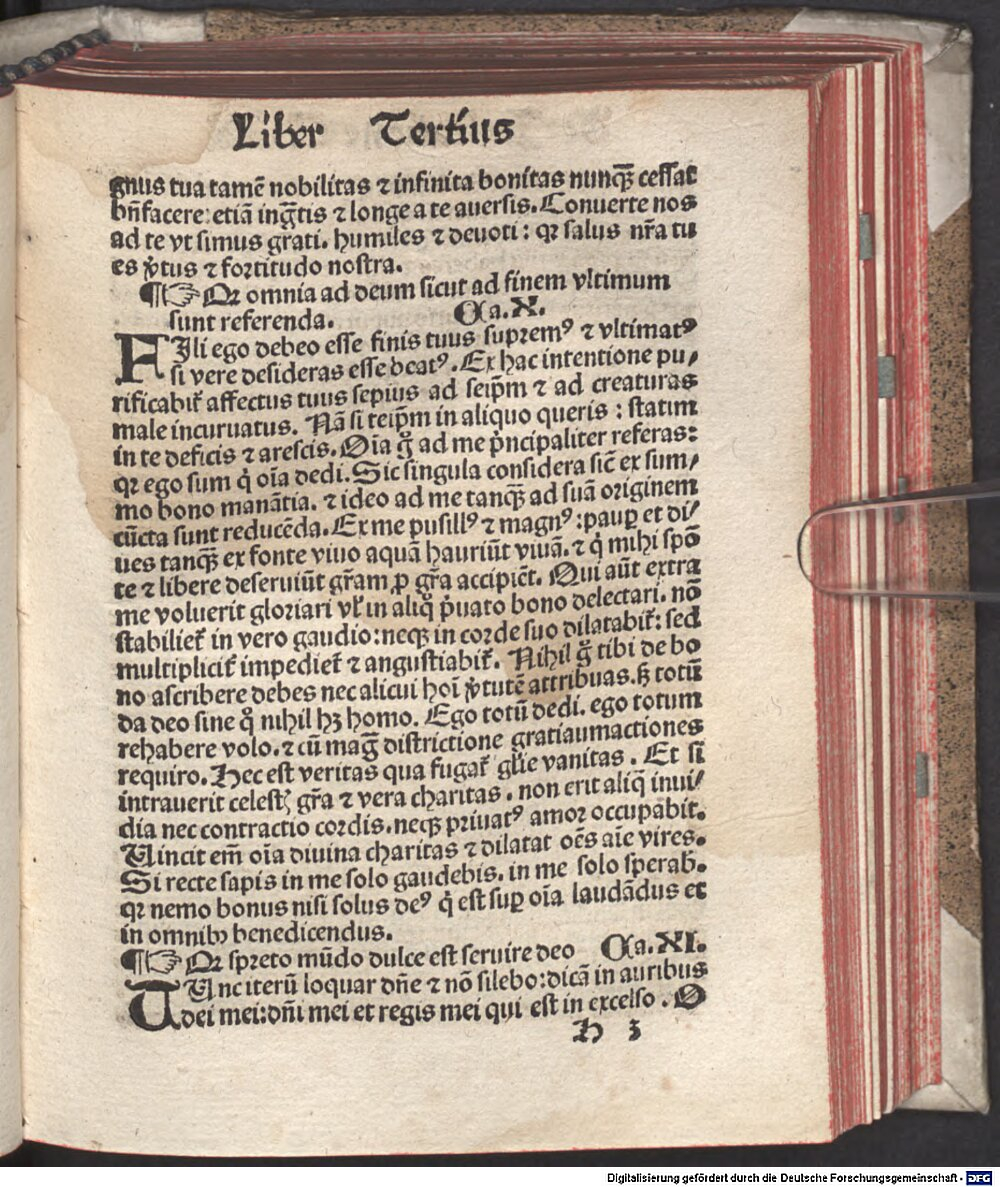 Liber Tertius
gnus tua tamē nobilitas ⁊ infinita bonitas nunqꝫ cessat
bn̄facere: etiā ingr̄tis ⁊ longe a te auersis. Conuerte nos
ad te vt simus grati. humiles ⁊ deuoti: qꝛ salus nr̄a tu
es v̓tus ⁊ fortitudo nostra.
¶☞ Qꝛ omnia ad deum sicut ad finem vltimum
sunt referenda. Ca. X.
FIli ego debeo esse finis tuus supremꝰ ⁊ vltimatꝰ
si vere desideras esse beatꝰ. Ex hac intentione pu/
rificabit̉ affectus tuus sepius ad seip̄m ⁊ ad creaturas
male incuruatus. Nā si teip̄m in aliquo queris: statim
in te deficis ⁊ arescis. Oīa g̊ ad me p̓ncipaliter referas:
qꝛ ego sum q̓ oīa dedi. Sic singula considera sic̄ ex sum/
mo bono manātia. ⁊ ideo ad me tanqꝫ ad suā originem
cūcta sunt reducēda. Ex me pusillꝰ ⁊ magnꝰ: paup̲ et di/
ues tanqꝫ ex fonte viuo aquā hauriūt viuā. ⁊ q̓ mihi spō
te ⁊ libere deseruiūt gr̄am ꝓ gr̄a accipiēt. Qui aūt extra
me voluerit gloriari vl̓ in aliq̊ p̓uato bono delectari. nō
stabiliet̉ in vero gaudio: neqꝫ in corde suo dilatabit̉: sed
multiplicit̓ impediet̉ ⁊ angustiabit̉. Nihil g̊ tibi de bo
no ascribere debes nec alicui hoī v̓tutē attribuas. sꝫ totū
da deo sine q̊ nihil hꝫ homo. Ego totū dedi. ego totum
rehabere volo. ⁊ cū maḡ districtione gratiaumactiones
requiro. Hec est veritas qua fugat̉ gl̓ie vanitas. Et si
intrauerit celestꝭ gr̄a ⁊ vera charitas. non erit aliq̄ inui/
dia nec contractio cordis. neqꝫ priuatꝰ amor occupabit.
Uincit em̄ oīa diuina charitas ⁊ dilatat oēs aīe vires.
Si recte sapis in me solo gaudebis. in me solo sperab̓.
qꝛ nemo bonus nisi solus deꝰ q̓ est sup̲ oīa laudādus et
in omnibꝰ benedicendus.
¶☞ Qꝛ spreto mūdo dulce est seruire deo Ca. XI.
NUnc iterū loquar dn̄e ⁊ nō silebo: dicā in auribus
dei mei: dn̄i mei et regis mei qui est in excelso. O
H 3
Digitalisierung gefördert durch die Deutsche Forschungsgemeinschaft - DFG